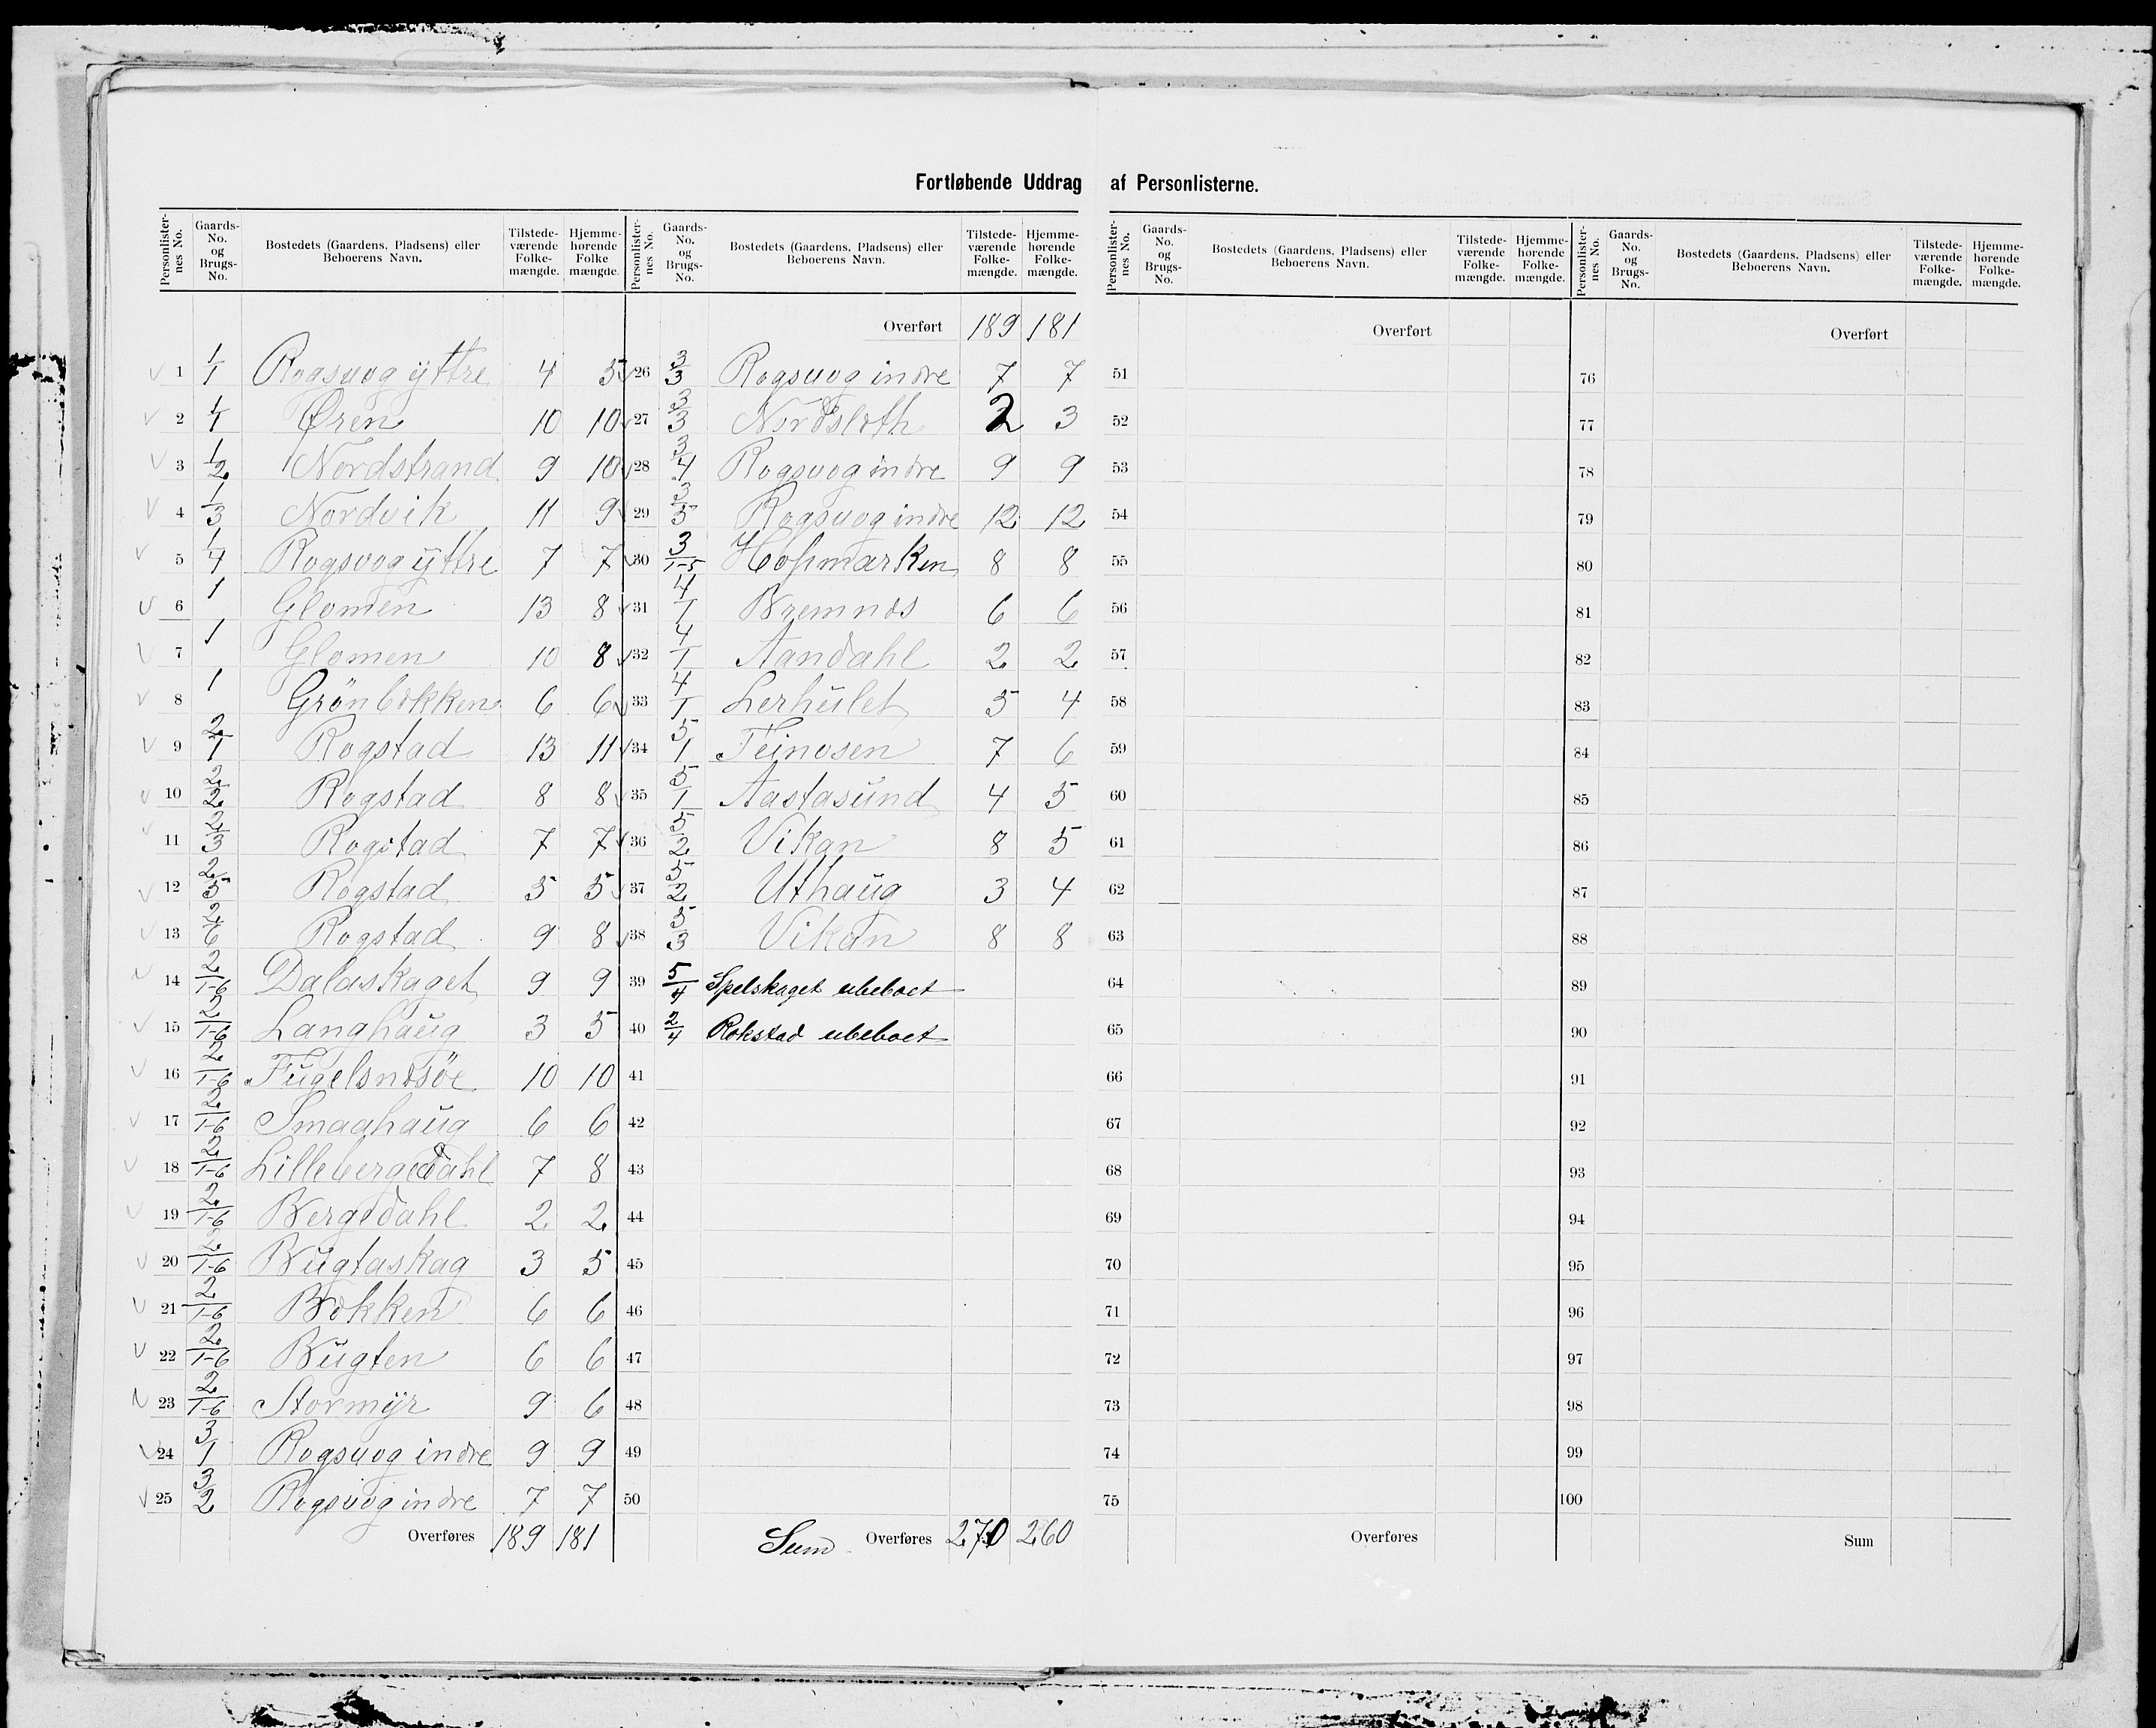 Fortløbende Uddrag af Personlisterne.
Personlister-nes No. | Gaards-No. og Brugs-No. | Bostedets (Gaardens, Pladsens) eller Beboerens Navn. | Tilstede-værende Folke-mængde. | Hjemme-hørende Folke mængde. | Personlister-nes No. | Gaards-No. og Brugs-No. | Bostedets (Gaardens, Pladsens) eller Beboerens Navn. | Tilstede-værende Folke-mængde. | Hjemme-hørende Folke-mængde. | Personlister-nes No. | Gaards-No. og Brugs-No. | Bostedets (Gaardens, Pladsens) eller Beboerens Navn. | Tilstede-værende Folke-mængde. | Hjemme-hørende Folke-mængde. | Personlister-nes No. | Gaards-No. og Brugs-No. | Bostedets (Gaardens, Pladsens) eller Beboerens Navn. | Tilstede-værende Folke-mængde. | Hjemme-hørende Folke-mængde.
Overført 189 181 Overført Overført
1 1/1 Rogsvog yttre 4 5 26 3/3 Rogsvog indre 7 7 51 76
2 1/1 Øren 10 10 27 3/3 Nordsloth 2 3 52 77
3 1/2 Nordstrand 9 10 28 3/4 Rogsvog indre 9 9 53 78
4 1/3 Nordvik 11 9 29 3/5 Rogsvog indre 12 12 54 79
5 1/4 Rogsvog yttre 7 7 30 3/1-5 Hopmarken 8 8 55 80
6 1 Glomen 13 8 31 4/1 Bremnæs 6 6 56 81
7 1 Glomen 10 8 32 4/1 Aandahl 2 2 57 82
8 1 Grönbækken 6 6 33 4/1 Lerhulet 5 4 58 83
9 2/1 Rogstad 13 11 34 5/1 Teinosen 7 6 59 84
10 2/2 Rogstad 8 8 35 5/1 Aastasund 4 5 60 85
11 2/3 Rogstad 7 7 36 5/2 Vikan 8 5 61 86
12 2/5 Rogstad 5 5 37 5/2 Uthaug 3 4 62 87
13 2/6 Rogstad 9 8 38 5/3 Vikan 8 8 63 88
14 2/1-6 Dalaskaget 9 9 39 5/4 Spelskaget ubeboet 64 89
15 2/1-6 Langhaug 3 5 40 2/4 Rokstad ubeboet 65 90
16 2/1-6 Fugelsnæsöe 10 10 41 66 91
17 2/1-6 Smaahaug 6 6 42 67 92
18 2/1-6 Lillebergedahl 7 8 43 68 93
19 2/1-6 Bergedahl 2 2 44 69 94
20 2/1-6 Bugtaskag 3 5 45 70 95
21 2/1-6 Bækken 6 6 46 71 96
22 2/1-6 Bugten 6 6 47 72 97
23 2/1-6 Stormyr 9 6 48 73 98
24 3/1 Rogsvog indre 9 9 49 74 99
25 3/2 Rogsvog indre 7 7 50 75 100
Overføres 189 181 Sum Overføres 270 260 Overføres Sum